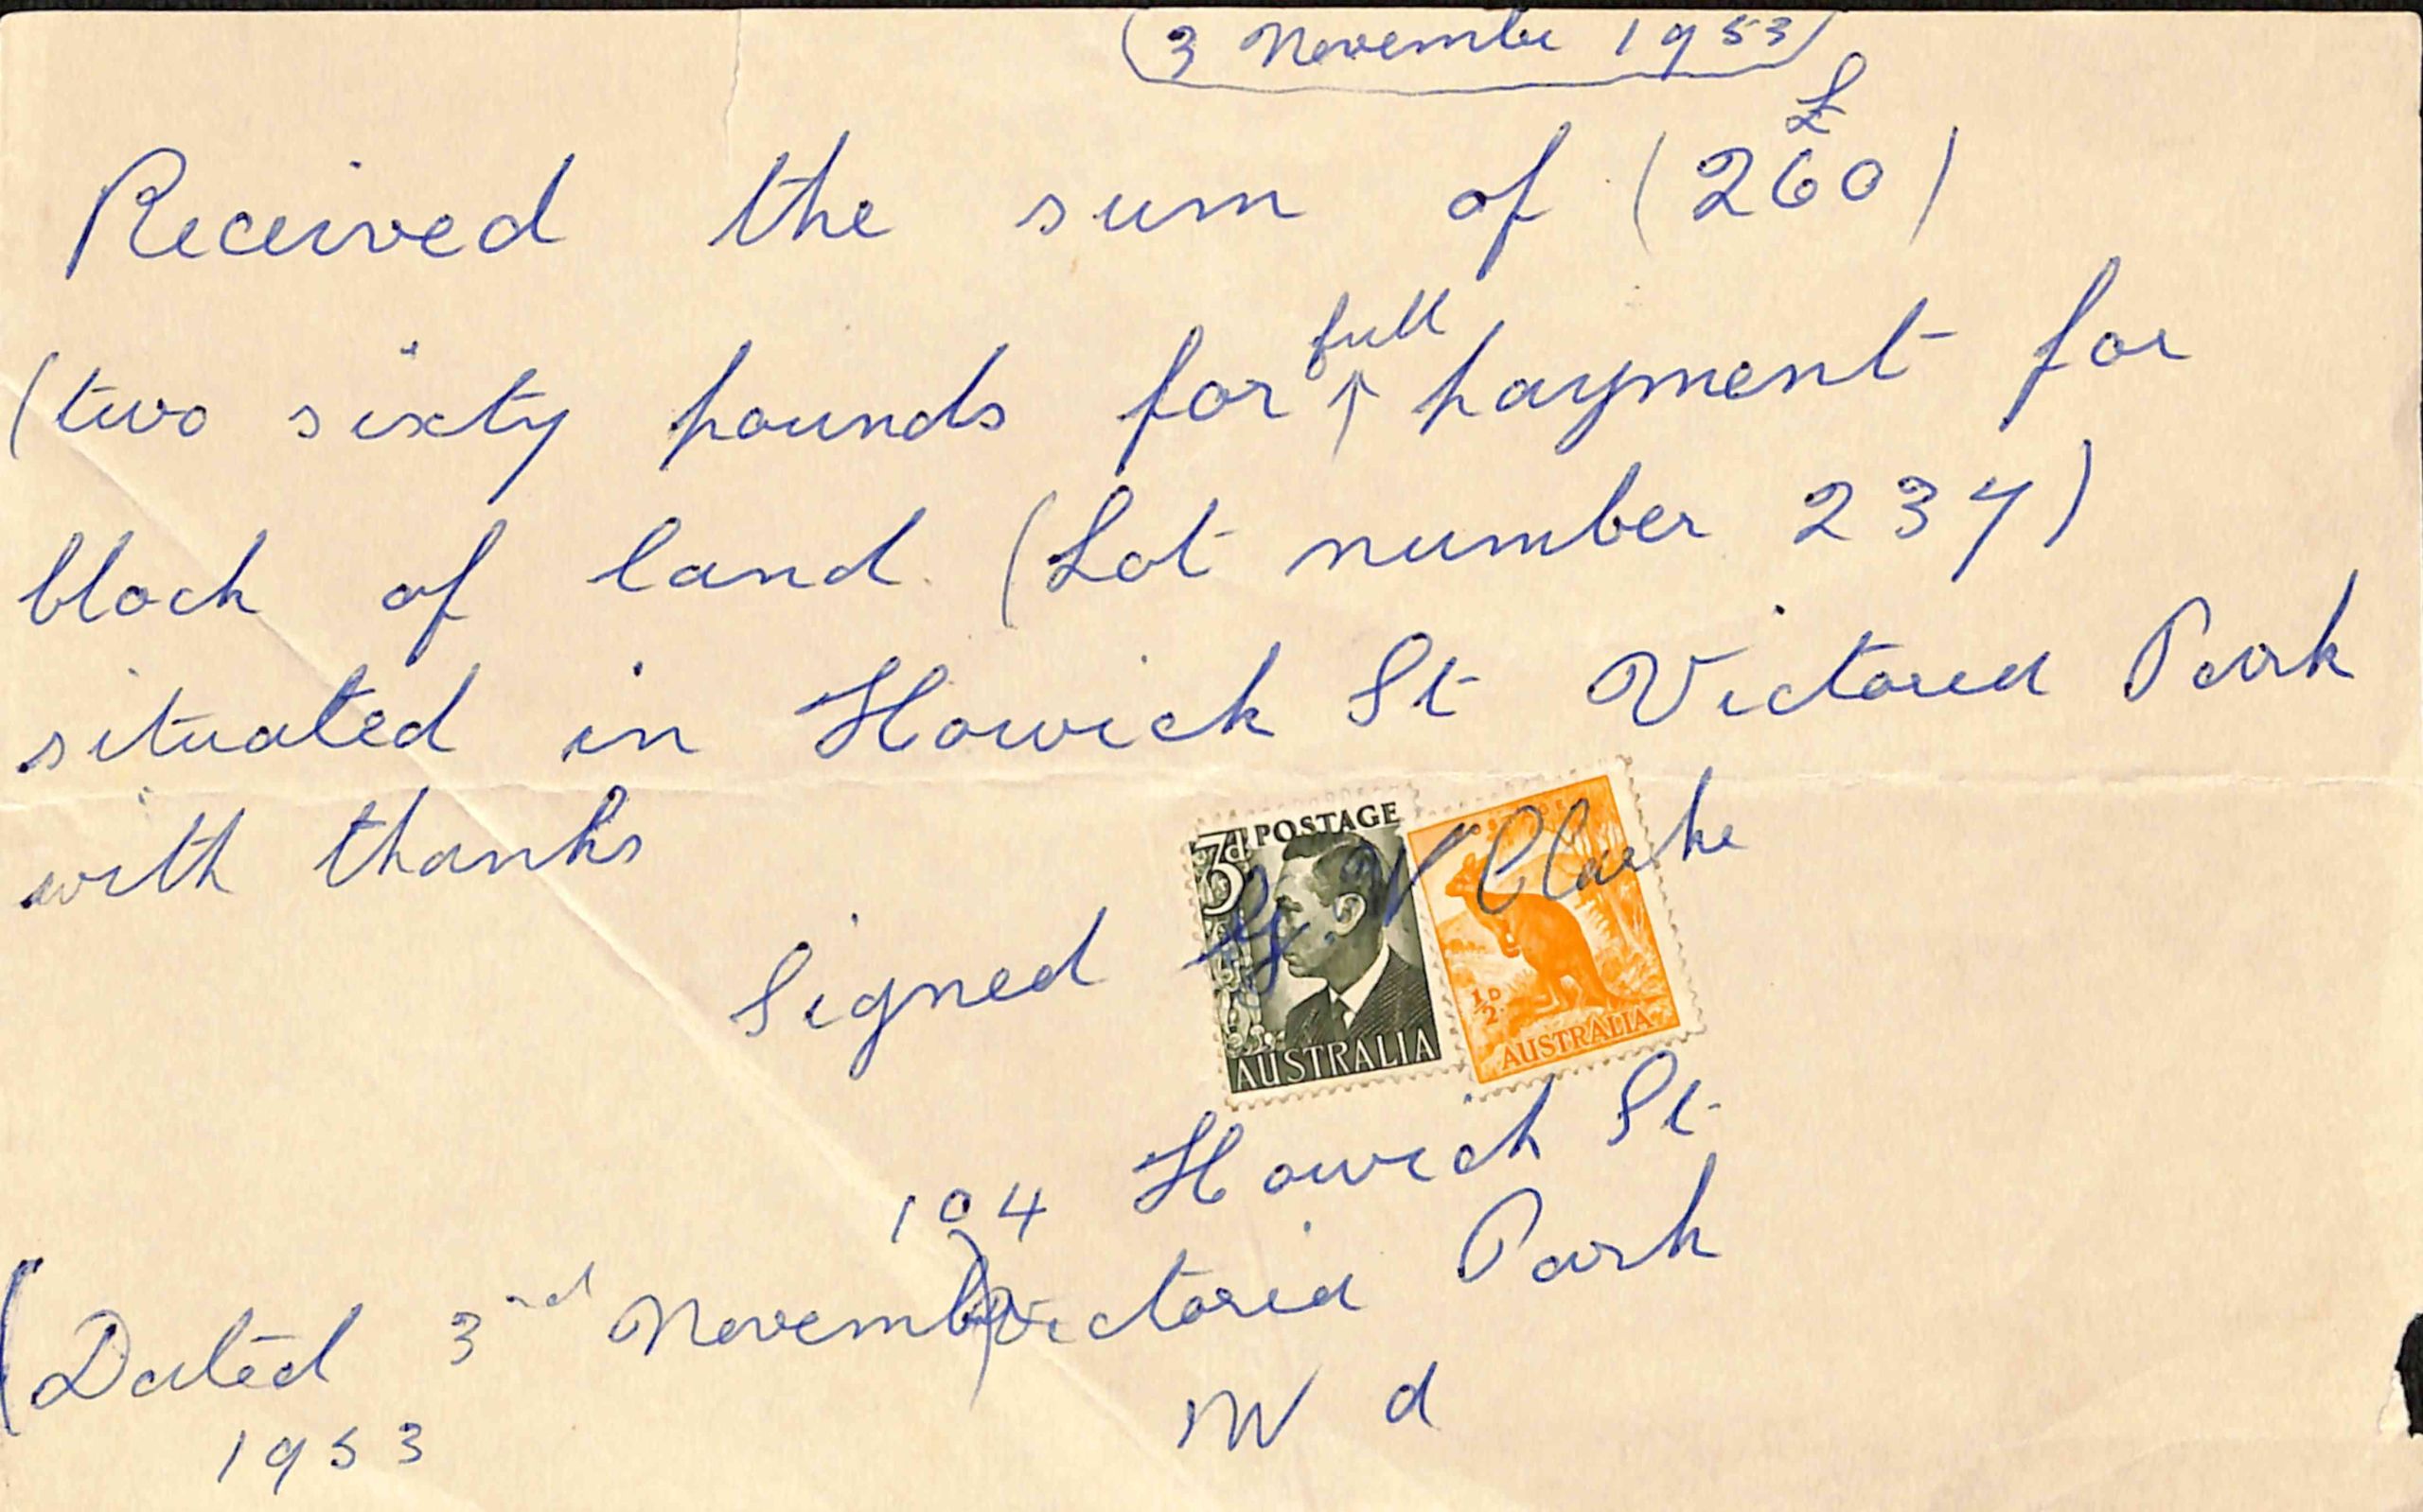 (3 November 1953)
£
Received the sum of (260)
full
(two sixty pounds for ↑ payment for
block of land. (Lot number 237)
situated in Howick St Victoria Park
with thanks
3d POSTAGE
Signed G. V Clarke
AUSTRALIA
½D
AUSTRALIA
104 Howick St
Victoria Park
(Dated 3nd Novemb)
1953